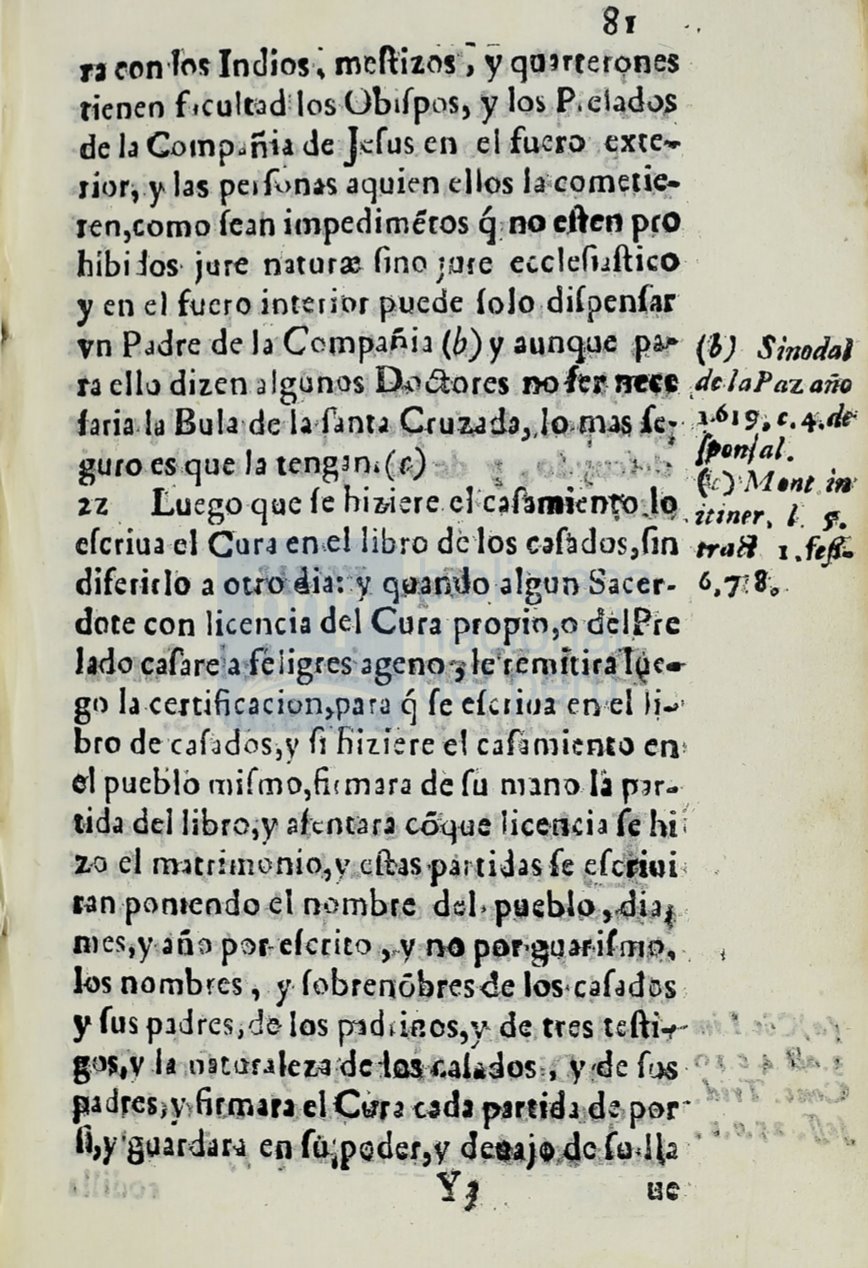 81
ra con los Indios, mestizos, y quarterones
tienen facultad los Obiſpos, y los Prelados
de la Compañia de Jeſus en el fuero exte-
rior, y las perſonas aquien ellos la cometie-
ren,como ſean impedimẽtos q́ no eſten pro
hibidos jure naturæ ſino jure eccleſiaſtico
y en el fuero interior puede ſolo diſpenſar
vn Padre de la Compañia (b) y aunque pa-
ra ello dizen algunos Doctores no ſer nece
ſaria la Bula de la ſanta Cruzada, lo mas ſe-
guro es que la tengan.(c)
22 Luego que ſe hiziere el caſamiento lo
eſcriua el Cura en el libro de los caſados,ſin
diferirlo a otro dia: y quando algun Sacer-
dote con licencia del Cura propio,o del Pre
lado caſare a feligres ageno, le remitira lue-
go la certificacion,para q́ ſe eſcriua en el li-
bro de caſados,y ſi hiziere el caſamiento en
el pueblo miſmo,firmara de ſu mano la par-
tida del libro,y aſentara cõque licencia ſe hi
zo el matrimonio,y eſtas partidas ſe eſcriui
ran poniendo el nombre del pueblo, dia,
mes,y año por eſcrito, y no por guariſmo,
los nombres, y ſobrenõbres de los caſados
y ſus padres,de los padrinos,y de tres teſti-
gos,y la naturaleza de los caſados, y de ſus
padres,y firmara el Cura cada partida de por
ſi,y guardara en ſu poder,y debajo de ſu lla
Y3 ue
(b) Sinodal
de la Paz año
1619, c. 4. de
ſponſal.
(c) Mont in
itiner, l. 5.
tract 1. ſeſſ.
6,7.8.